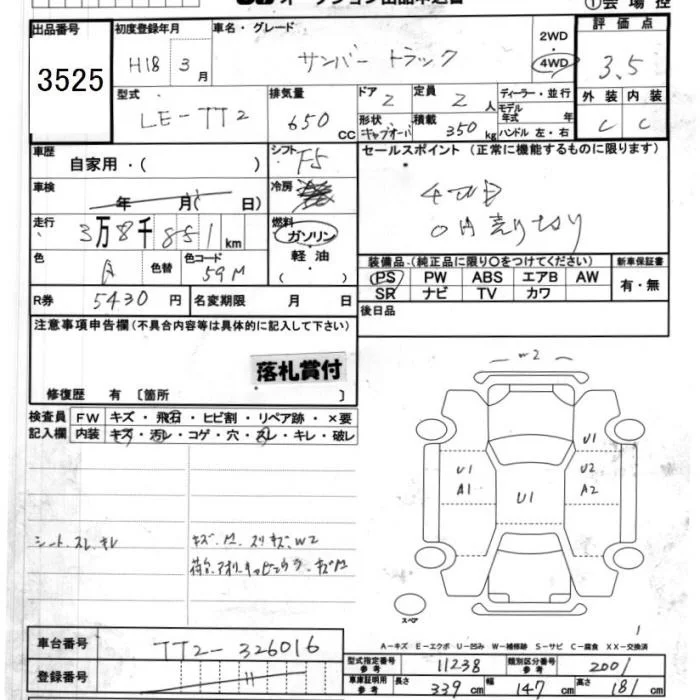 ①会場控
出品番号
3525
初度登録年月
H18 3月
車名・グレード
サンバー トラック
2WD
4WD
評価点
3.5
型式
LE-TT2
排気量
650 CC
ドア 2
定員 2人
ディーラー・並行
モデル年式 年
ハンドル 左・右
形状 キャブオーバ
積載 350kg
外装 内装
C C
車歴
自家用・( )
シフト F5
セールスポイント (正常に機能するものに限ります)
4WD
0円売り切り
車検
年 月( 日)
冷房
走行
3万8千851km
燃料
ガソリン
軽油
( )
色 A
色替
色コード 59M
装備品(純正品に限り○をつけてください)
新車保証書
PS PW ABS エアB AW
SR ナビ TV カワ
有・無
R券 5430円
名変期限 月 日
後日品
注意事項申告欄(不具合内容等は具体的に記入して下さい)
落札賞付
修復歴 有 [箇所 ]
検査員
記入欄
FW キズ・飛石・ヒビ割・リペア跡・×要
内装 キズ・汚レ・コゲ・穴・スレ・キレ・破レ
W2
U1
U1 U2
A1 A2
U1
シート スレ キレ
スペア
A-キズ E-エクボ U-凹み W-補修跡 S-サビ C-腐食 XX-交換済
車台番号
TT2-326016
登録番号
型式指定番号 参考 11238
類別区分番号 参考 2001
車庫証明用 参考 長さ 339cm 幅 147cm 高さ 181cm